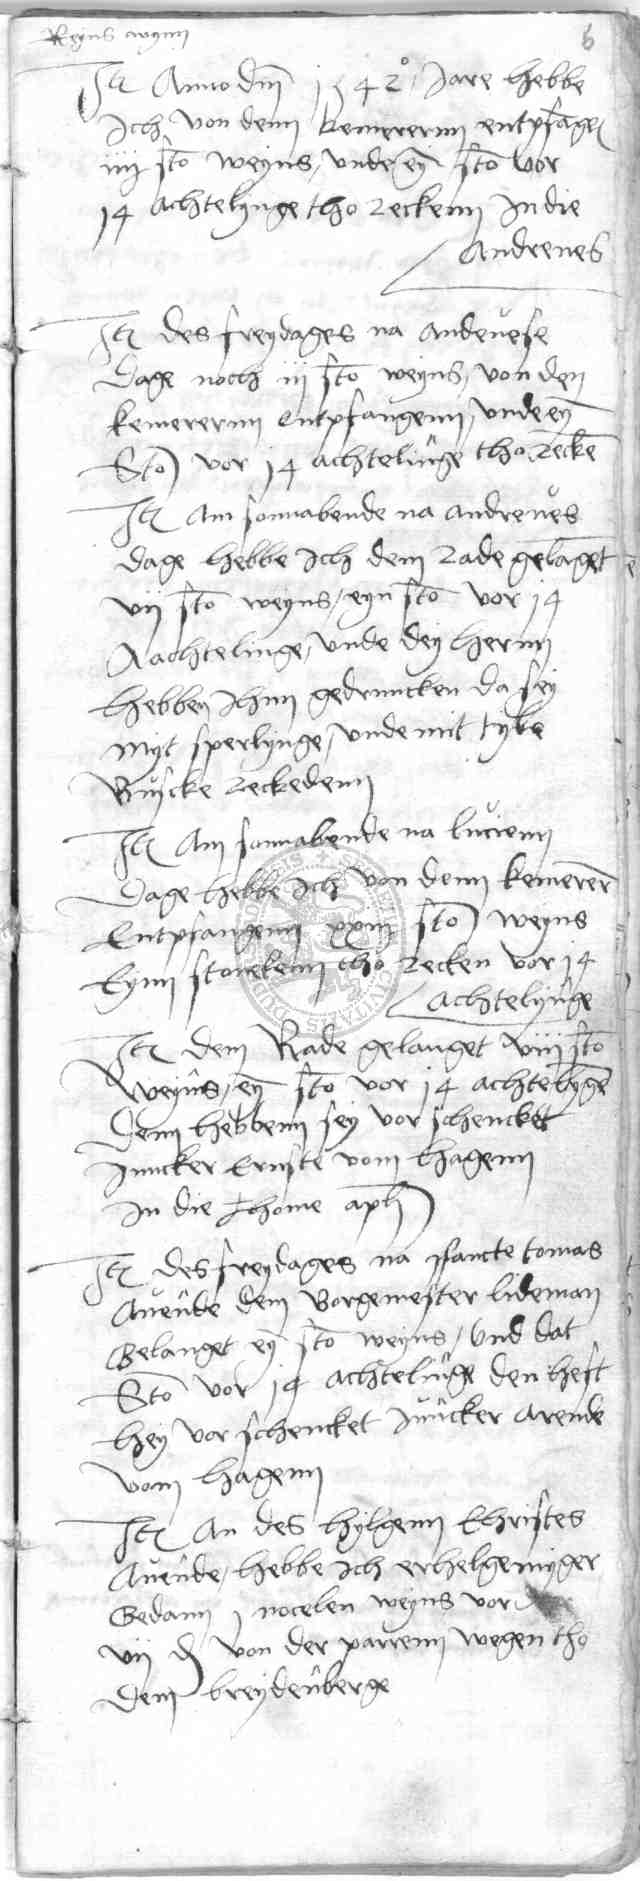 Reyns wynn
6
It Anno dm 1542° Jare hebbe
Ich von denn kemerernn entpfange
iiij sto weyns, unde ey sto vor
14 achtelynge tho reckenn In die
Andreues
It des freydages na Andeuese
Dage noch iij sto weyns, von den
kemerernn Entpfangenn, unde ey
Sto vor 14 achtelinge tho recke
It Am sonnabende na Andreues
dage hebbe Ich dem Rade gelanget
vij sto weyns, eyn sto vor 14
Aachtelinge, unde dey hernn
hebben Ihnn gedrunncken da sey
myt sperlynge, unde mit tyle
Buscke reckedenn
It Am sonnabende na lucienn
Dage hebbe Ich von denn kemerer
Entpfangenn xxiij sto weyns
Eynn stoueken tho recken vor 14
achtelynge
It dem Rade gelanget viij sto
Weyns, ey sto vor 14 achtelyge
Denn hebbenn sey vorschencket
Juncker Ernste vom hagenn
In die thome apli
It des freydages na sancte tomas
Auende dem Borgemester lideman
Gelanget ey sto weyns, und dat
Sto vor 14 achtelinge den heft
hey vorschencket Juncker Arende
vom hagenn
It An des hylgenn Christes
Auende, hebbe Ich er helgemyger
Gedann j nocelen weyns vor
vij d von der parrenn wegen tho
dem breydenberge